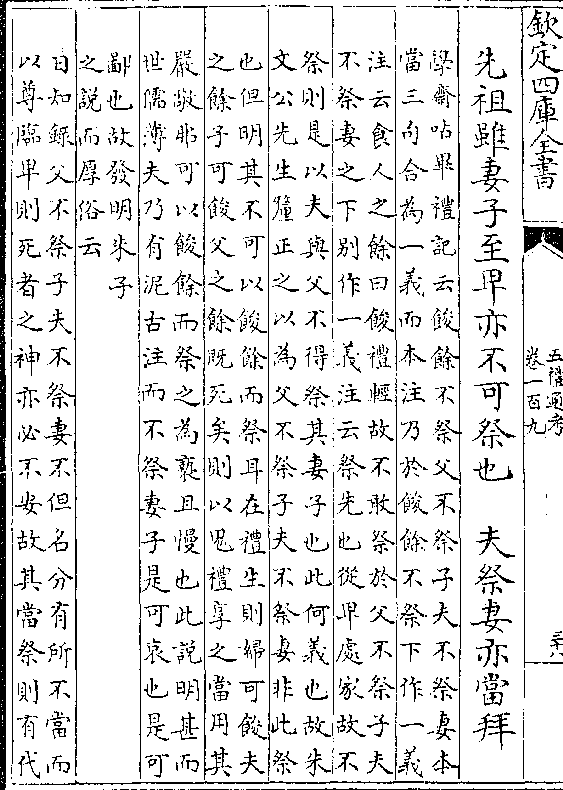 欽定四庫全書
五禮通考
卷一百九
先祖雖妻子至卑亦不可祭也　夫祭妻亦當拜
學齋呫畢禮記云餕餘不祭父不祭子夫不祭妻本
當三句合為一義而本注乃於餕餘不祭下作一義
注云食人之餘曰餕禮輕故不敢祭於父不祭子夫
不祭妻之下别作一義注云祭先也從卑處家故不
祭則是以夫與父不得祭其妻子也此何義也故朱
文公先生釐正之以為父不祭子夫不祭妻非此祭
也但明其不可以餕餘而祭耳在禮生則婦可餕夫
之餘子可餕父之餘既死矣則以鬼禮享之當用其
嚴敬那可以餕餘而祭之為䙝且慢也此說明甚而
世儒薄夫乃有泥古注而不祭妻子是可哀也是可
鄙也故發明朱子
之說而厚俗云
日知録父不祭子夫不祭妻不但名分有所不當而
以尊臨卑則死者之神亦必不安故其當祭則有代